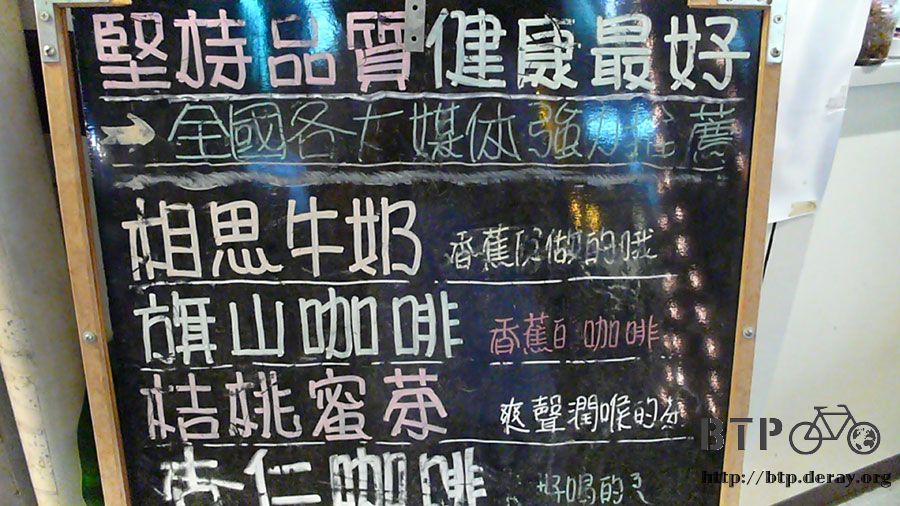 堅持品質健康最好
全國各大媒体強力推薦
相思牛奶 香蕉 做的哦
旗山咖啡 香蕉 咖啡
桔姚蜜茶 爽聲潤喉的
杏仁咖啡 好喝的
BTP
http://btp.deray.org